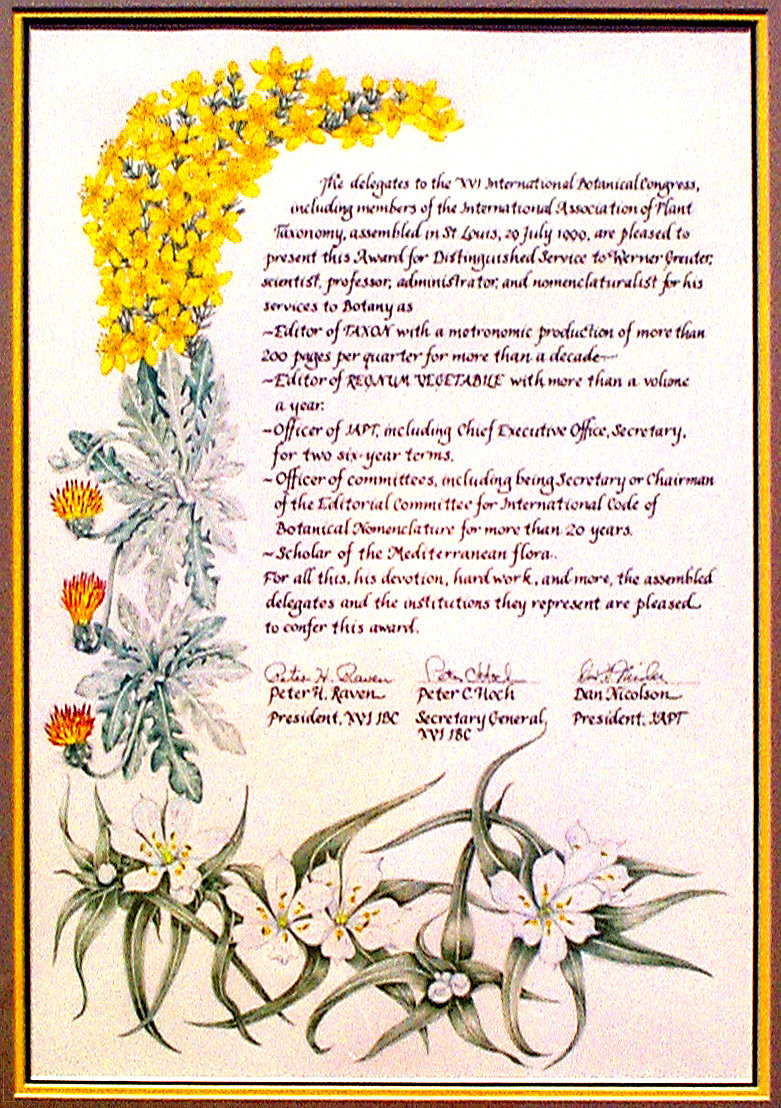 The delegates to the XVI International Botanical Congress,
including members of the International Association of Plant
Taxonomy, assembled in St Louis, 29 July 1999, are pleased to
present this Award for Distinguished Service to Werner Greuter,
scientist, professor, administrator, and nomenclaturalist for his
services to Botany as
~Editor of TAXON with a metronomic production of more than
200 pages per quarter for more than a decade
~Editor of REGNUM VEGETABILE with more than a volume
a year.
~Officer of IAPT, including Chief Executive Office, Secretary,
for two six-year terms.
~Officer of committees, including being Secretary or Chairman
of the Editorial Committee for International Code of
Botanical Nomenclature for more than 20 years.
~Scholar of the Mediterranean flora.
For all this, his devotion, hard work, and more, the assembled
delegates and the institutions they represent are pleased
to confer this award.
Peter H. Raven
Peter H. Raven Peter C. Hoch Dan Nicolson
President, XVI IBC Secretary General, President, IAPT
XVI IBC